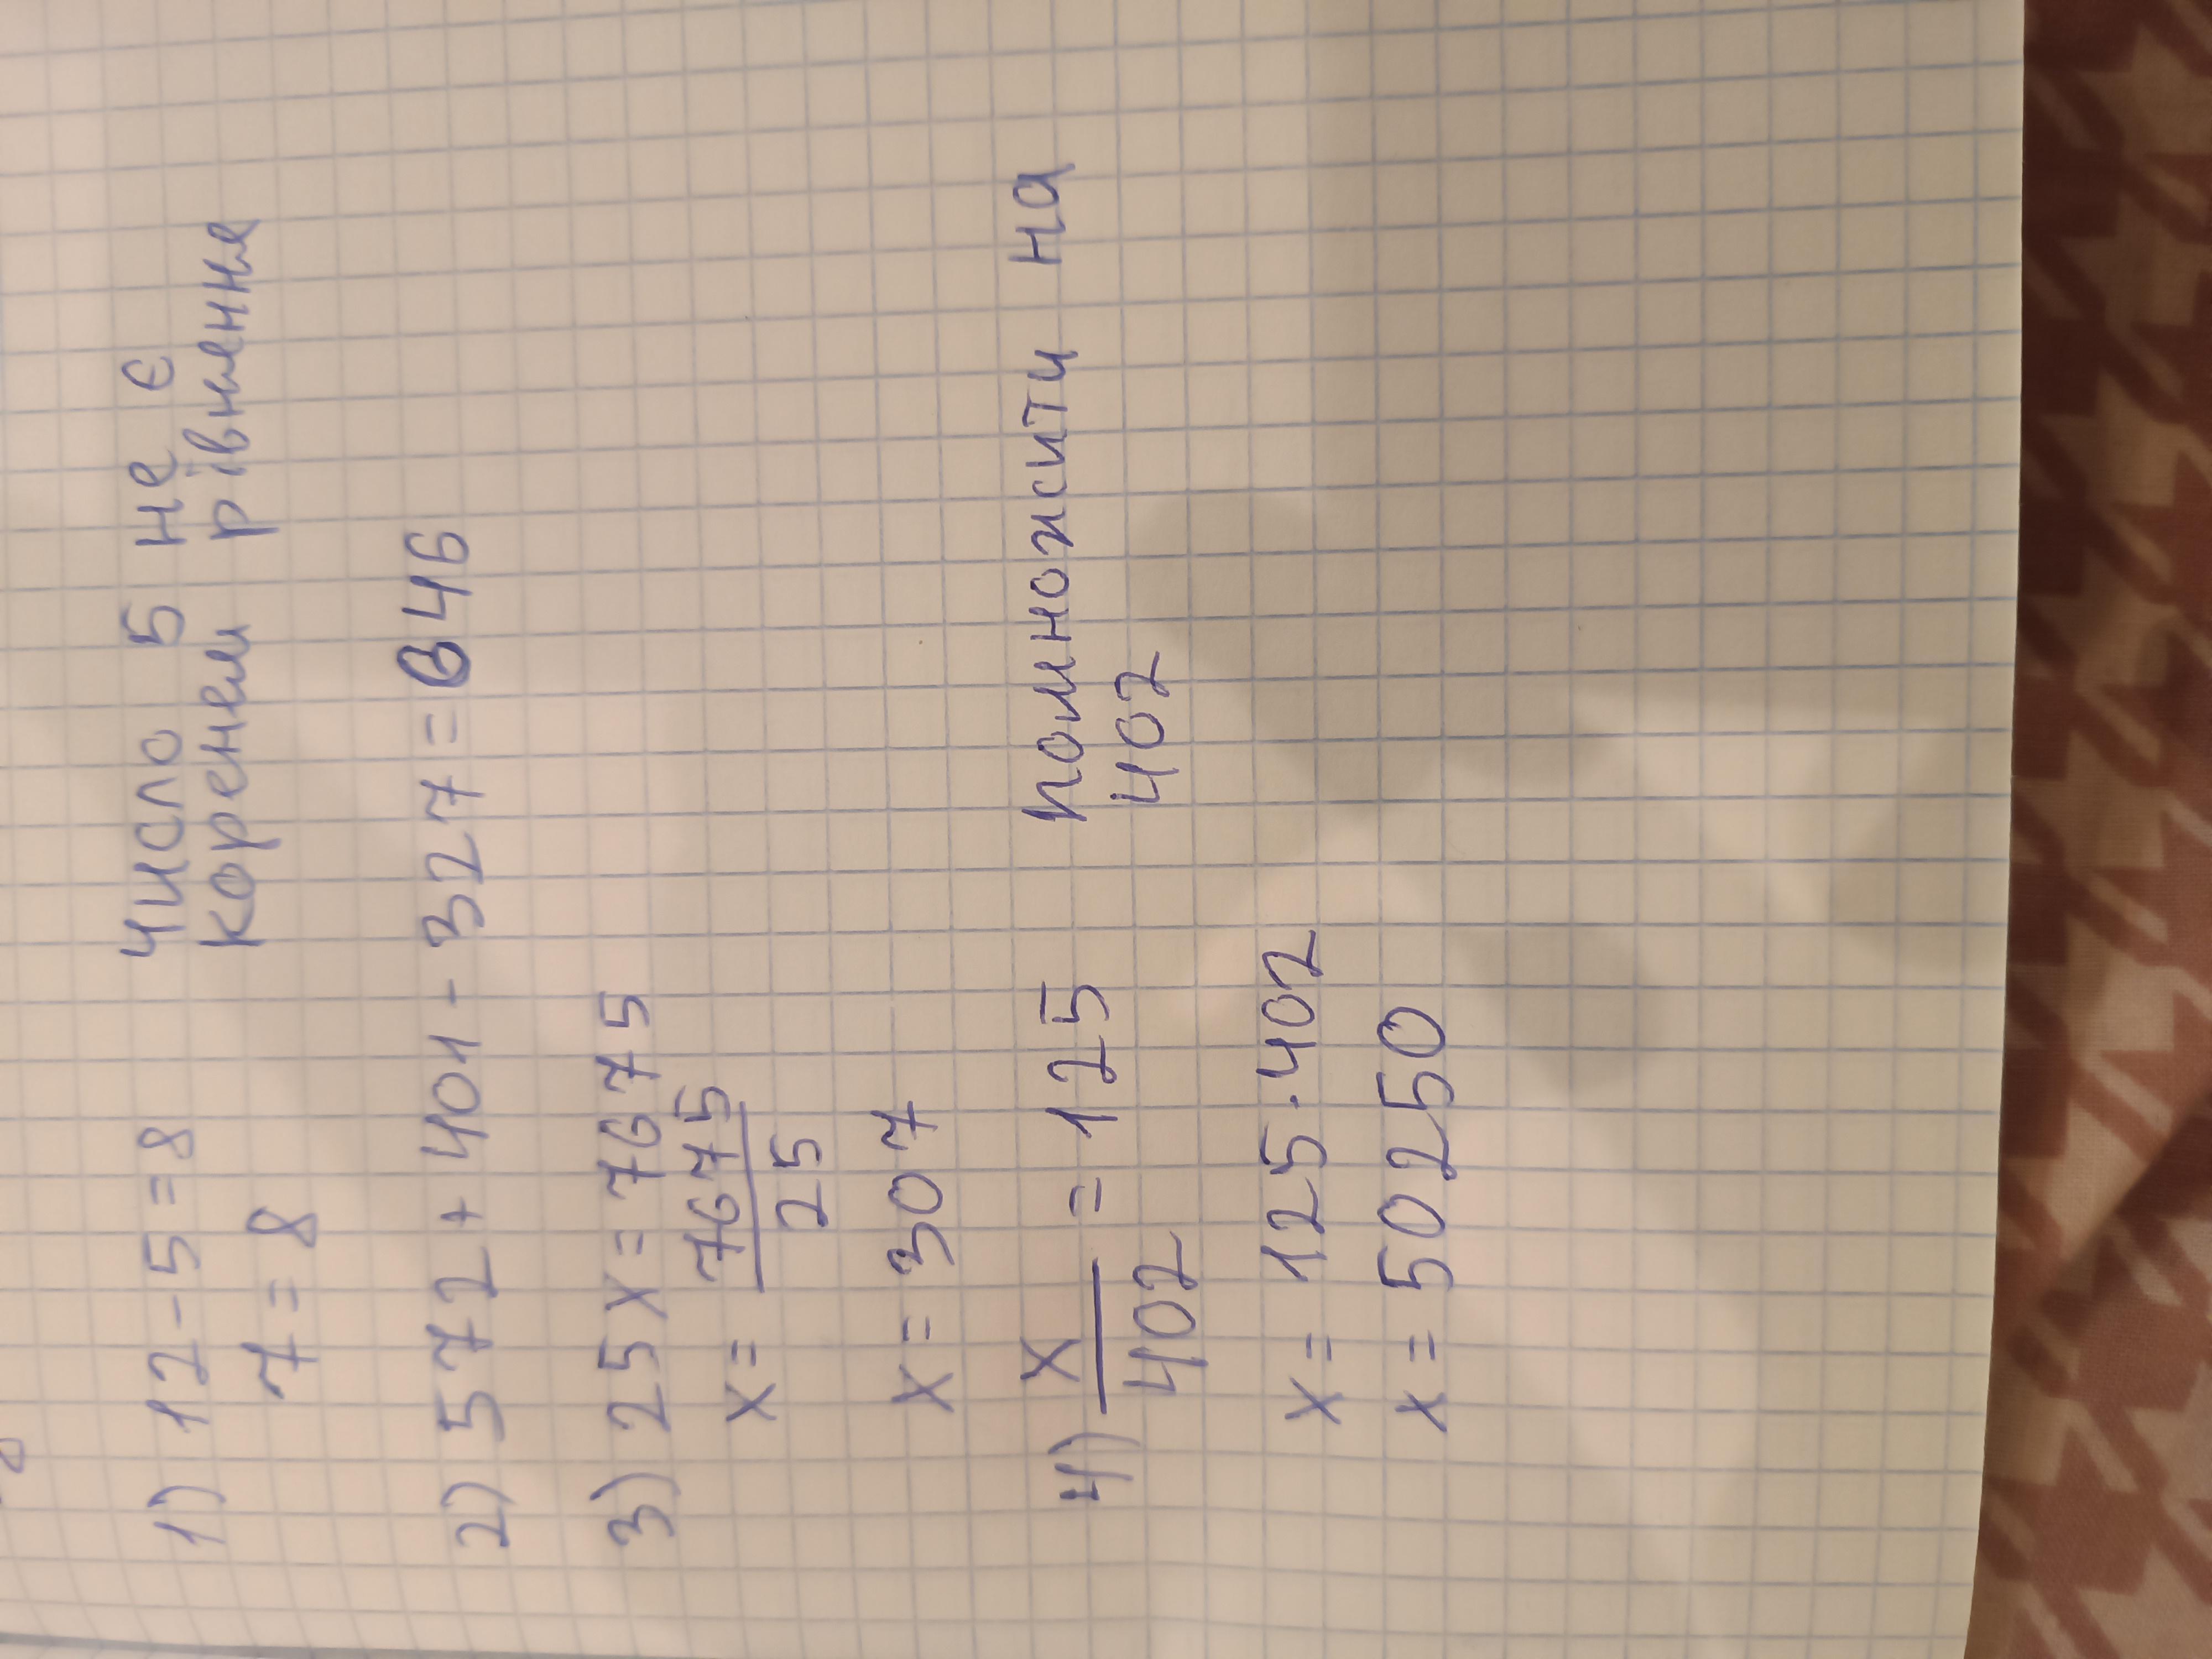 1) 12-5=8 Число 5 не є
7=8 коренем рівнення
2) 572+401-327=646
3) 25x=7675
x= 7675
25
x=307
4) x = 125 помножити на
402 402
x=125·402
x=50250